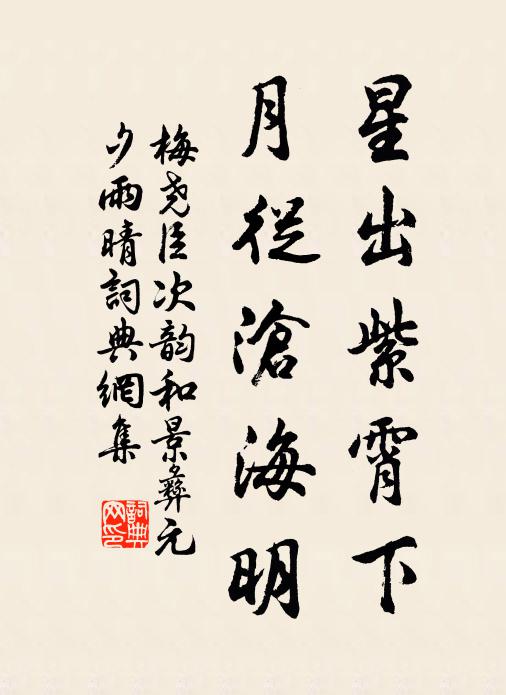 星出紫霄下
月從滄海明
梅堯臣次韵和景彝元
夕雨晴詞典網集
詞典
网印